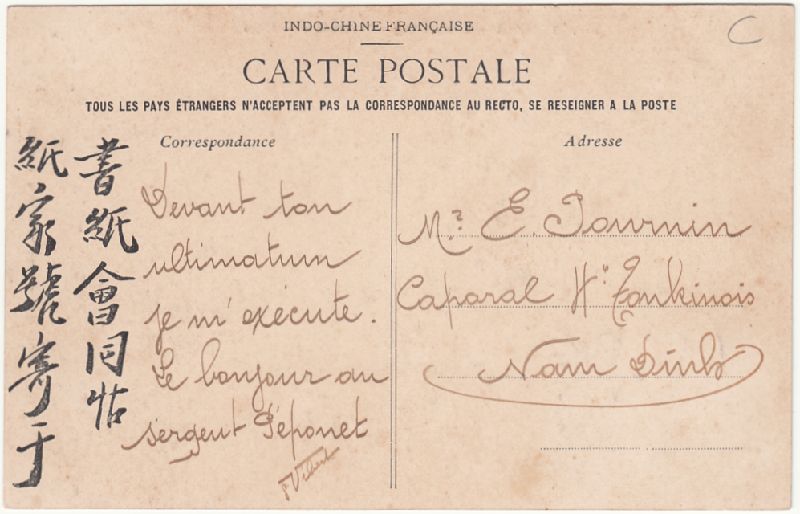 C
INDO-CHINE FRANÇAISE
CARTE POSTALE
TOUS LES PAYS ÉTRANGERS N'ACCEPTENT PAS LA CORRESPONDANCE AU RECTO, SE RESEIGNER A LA POSTE
Correspondance
Adresse
書紙會同帖
紙家號寄于
Devant ton
ultimatum
je m'exécute.
Le bonjour au
sergent Péponet
Mr. E. Tournin
Caporal Tonkinois
Nam Dinh